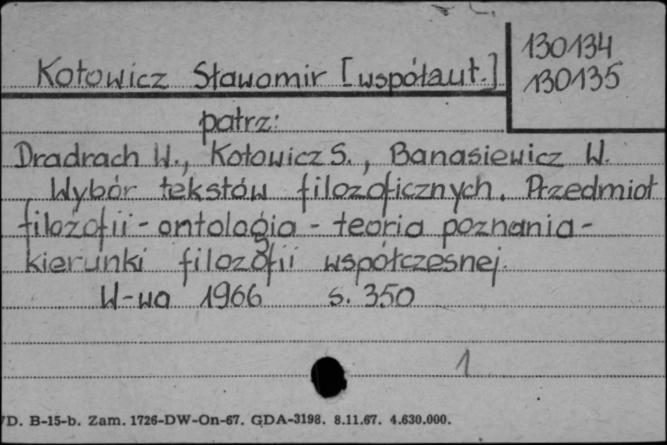 130134
130135
Kotowicz Sławomir [współaut.]
patrz:
Dradrach W., Kotowicz S., Banasiewicz W.
Wybór tekstów filozoficznych. Przedmiot
filozofii - ontologia - teoria poznania -
kierunki filozofii współczesnej.
W-wa 1966 s. 350
1
/D. B-15-b. Zam. 1726-DW-On-67. GDA-3198. 8.11.67. 4.630.000.